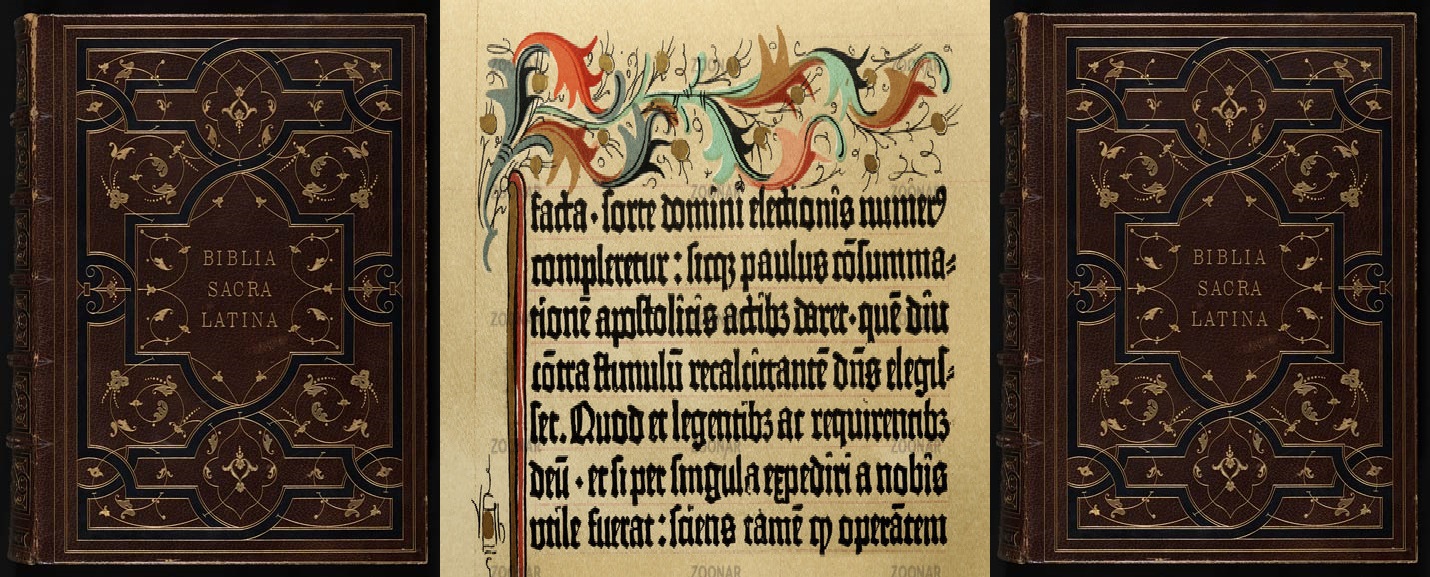 BIBLIA
SACRA
LATINA
facta · ſorte domini electionis numerꝰ
completetur : ſicqꝫ paulus cōſumma⸗
tionē apoſtolicis actibꝫ daret · quē diu
cōtra ſtimulū recalcitrantē dn̄s elegiſ⸗
ſet. Quod et legentibꝫ ac requirentibꝫ
deū · et ſi per ſingula expediri a nobis
utile fuerat : ſciens tamē ꝙ operātem
ZOONAR
BIBLIA
SACRA
LATINA